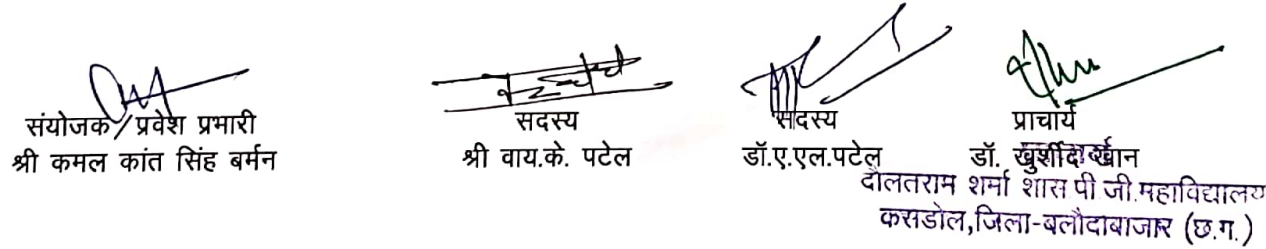 संयोजक / प्रवेश प्रभारी
श्री कमल कांत सिंह बर्मन
सदस्य
श्री वाय.के. पटेल
सदस्य
डॉ.ए.एल.पटेल
प्राचार्य
डॉ. खुर्शीद खान
दौलतराम शर्मा शास पी.जी.महाविद्यालय
कसडोल,जिला-बलौदाबाजार (छ.ग.)